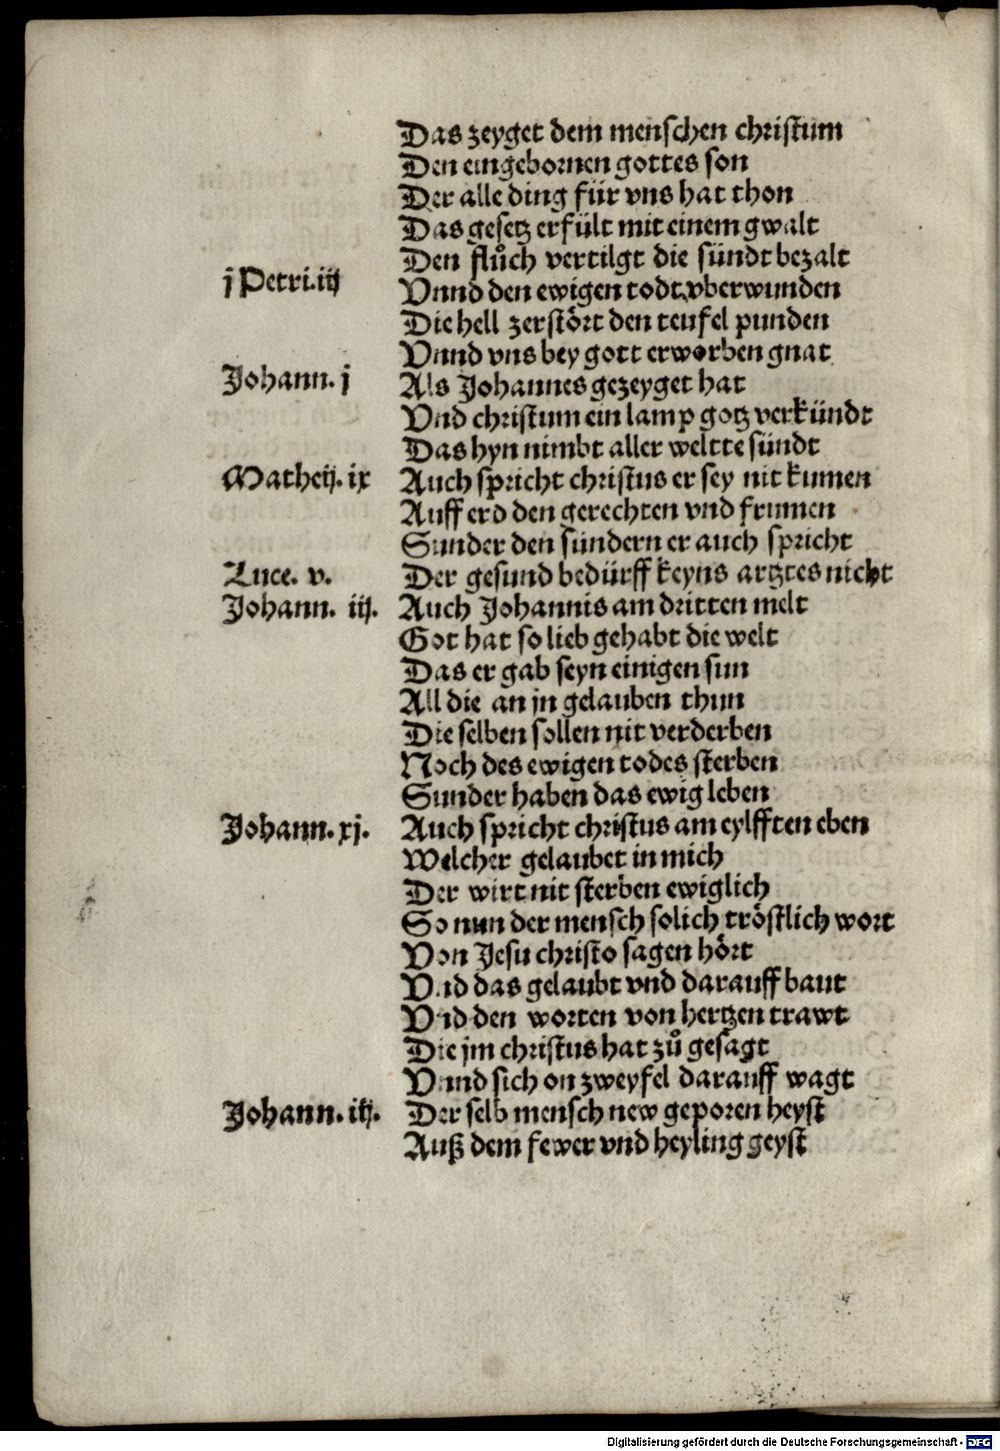 Das zeyget dem menschen christum
Den eingebornen gottes son
Der alle ding für vns hat thon
Das gesetz erfült mit einem gwalt
Den flůch vertilgt die sündt bezalt
j Petri. iij Vnnd den ewigen todt vberwunden
Die hell zerstört den teufel punden
Vnnd vns bey gott erworben gnat
Johann. j Als Johannes gezeyget hat
Vnd christum ein lamp gotz verkündt
Das hyn nimbt aller weltte sündt
Matheij. ix Auch spricht christus er sey nit kumen
Auff erd den gerechten vnd frumen
Sunder den sündern er auch spricht
Luce. v. Der gesund bedürff keyns artztes nicht
Johann. iij. Auch Johannis am dritten melt
Got hat so lieb gehabt die welt
Das er gab seyn einigen sun
All die an jn gelauben thun
Die selben sollen nit verderben
Noch des ewigen todes sterben
Sunder haben das ewig leben
Johann. xj. Auch spricht christus am eylfften eben
Welcher gelaubet in mich
Der wirt nit sterben ewiglich
So nun der mensch solich tröstlich wort
Von Jesu christo sagen hört
Vnd das gelaubt vnd darauff baut
Vnd den worten von hertzen trawt
Die jm christus hat zů gesagt
Vnnd sich on zweyfel darauff wagt
Johann. iij. Der selb mensch new geporen heyst
Auß dem fewer vnd heyling geyst
Digitalisierung gefördert durch die Deutsche Forschungsgemeinschaft - DFG